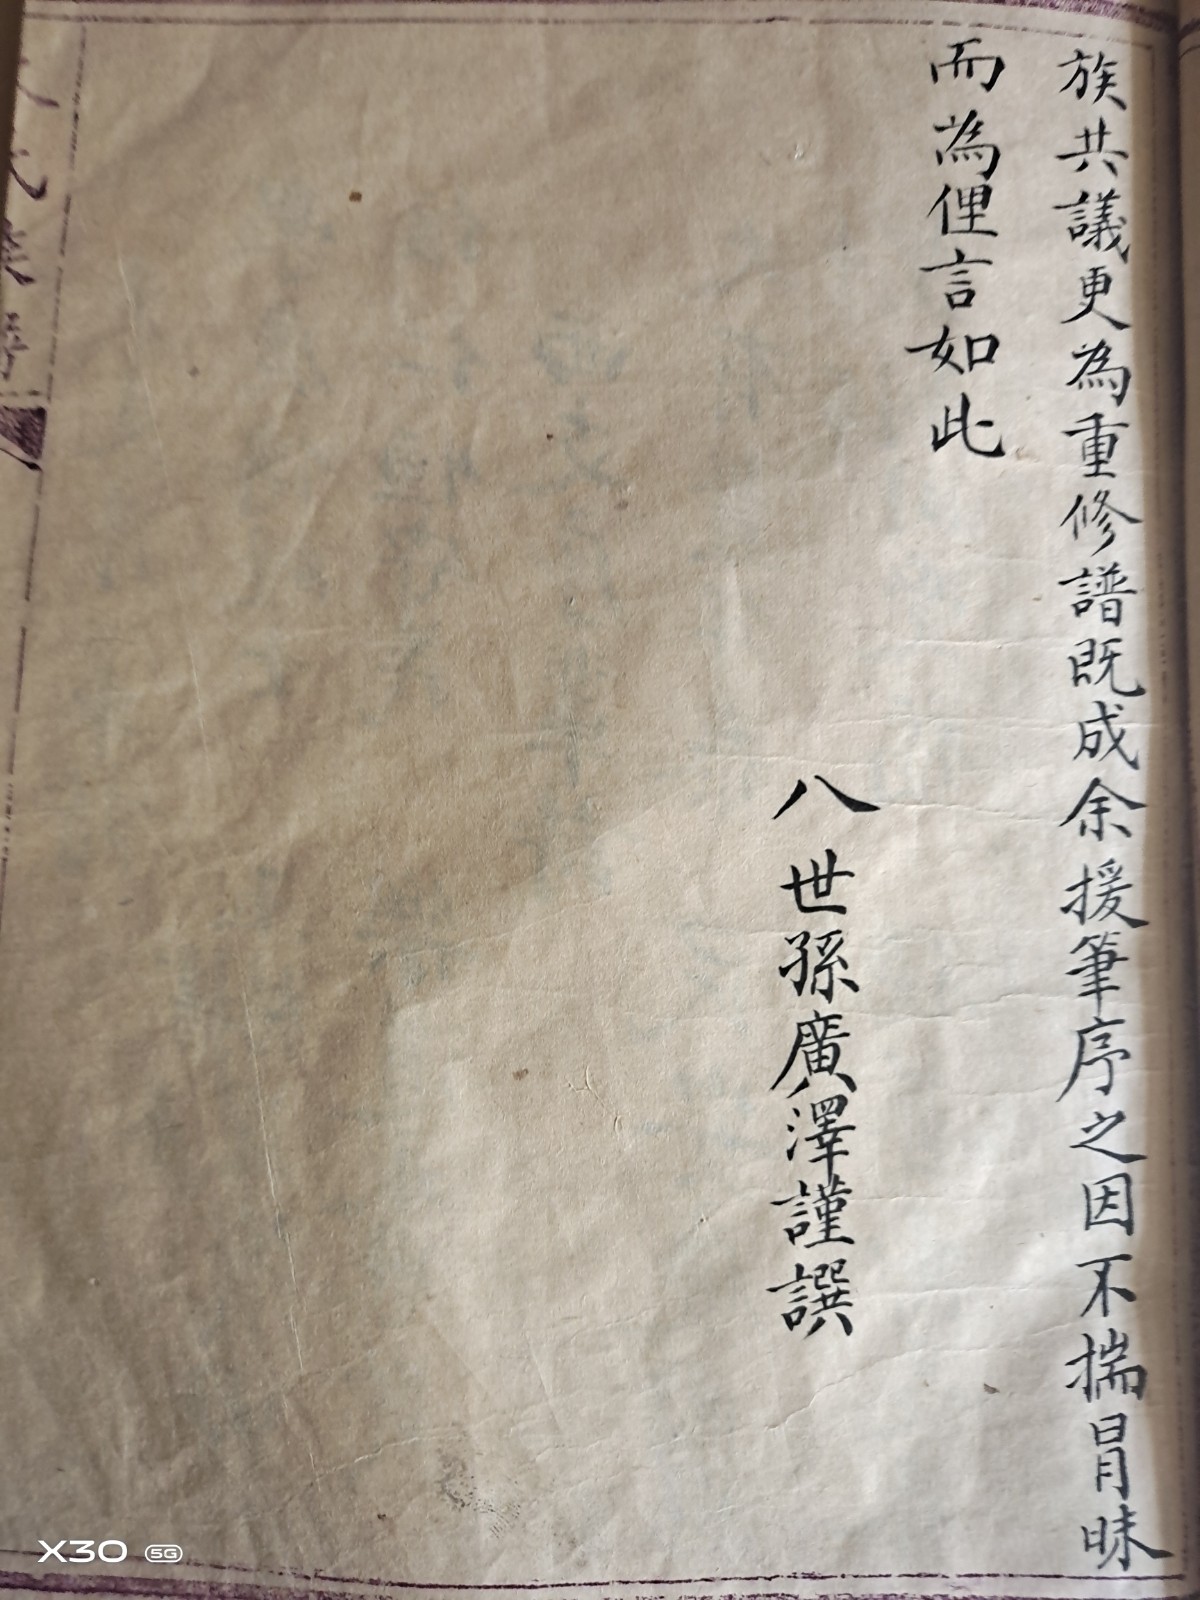 族共議更為重修譜既成余援筆序之因不揣冒昧
而為俚言如此
八世孫廣澤謹譔
X30 5G